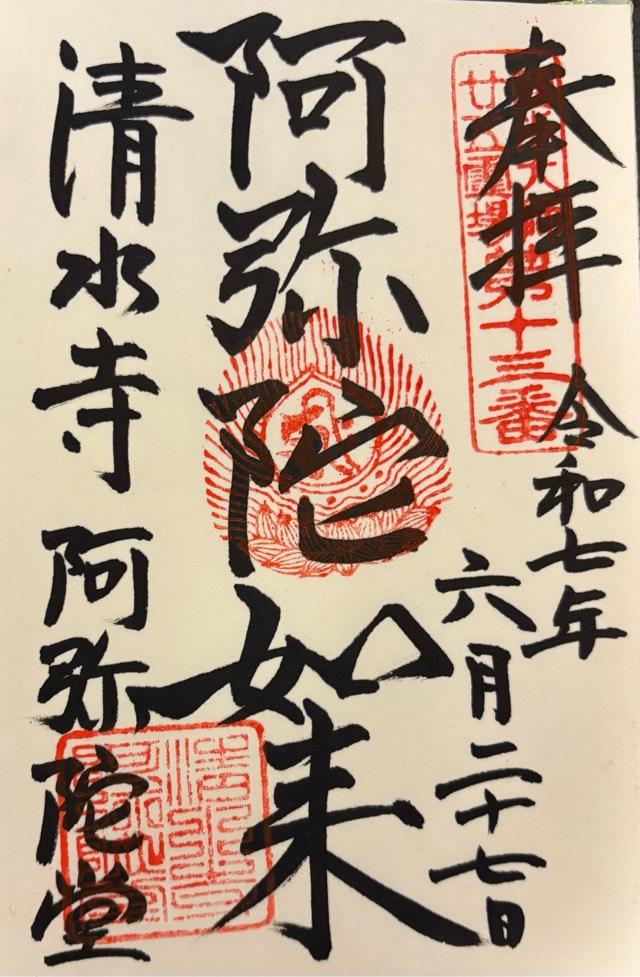 奉拝
令和七年
六月二十七日
廿五霊場第十三番
阿弥陀如来
清水寺 阿弥陀堂